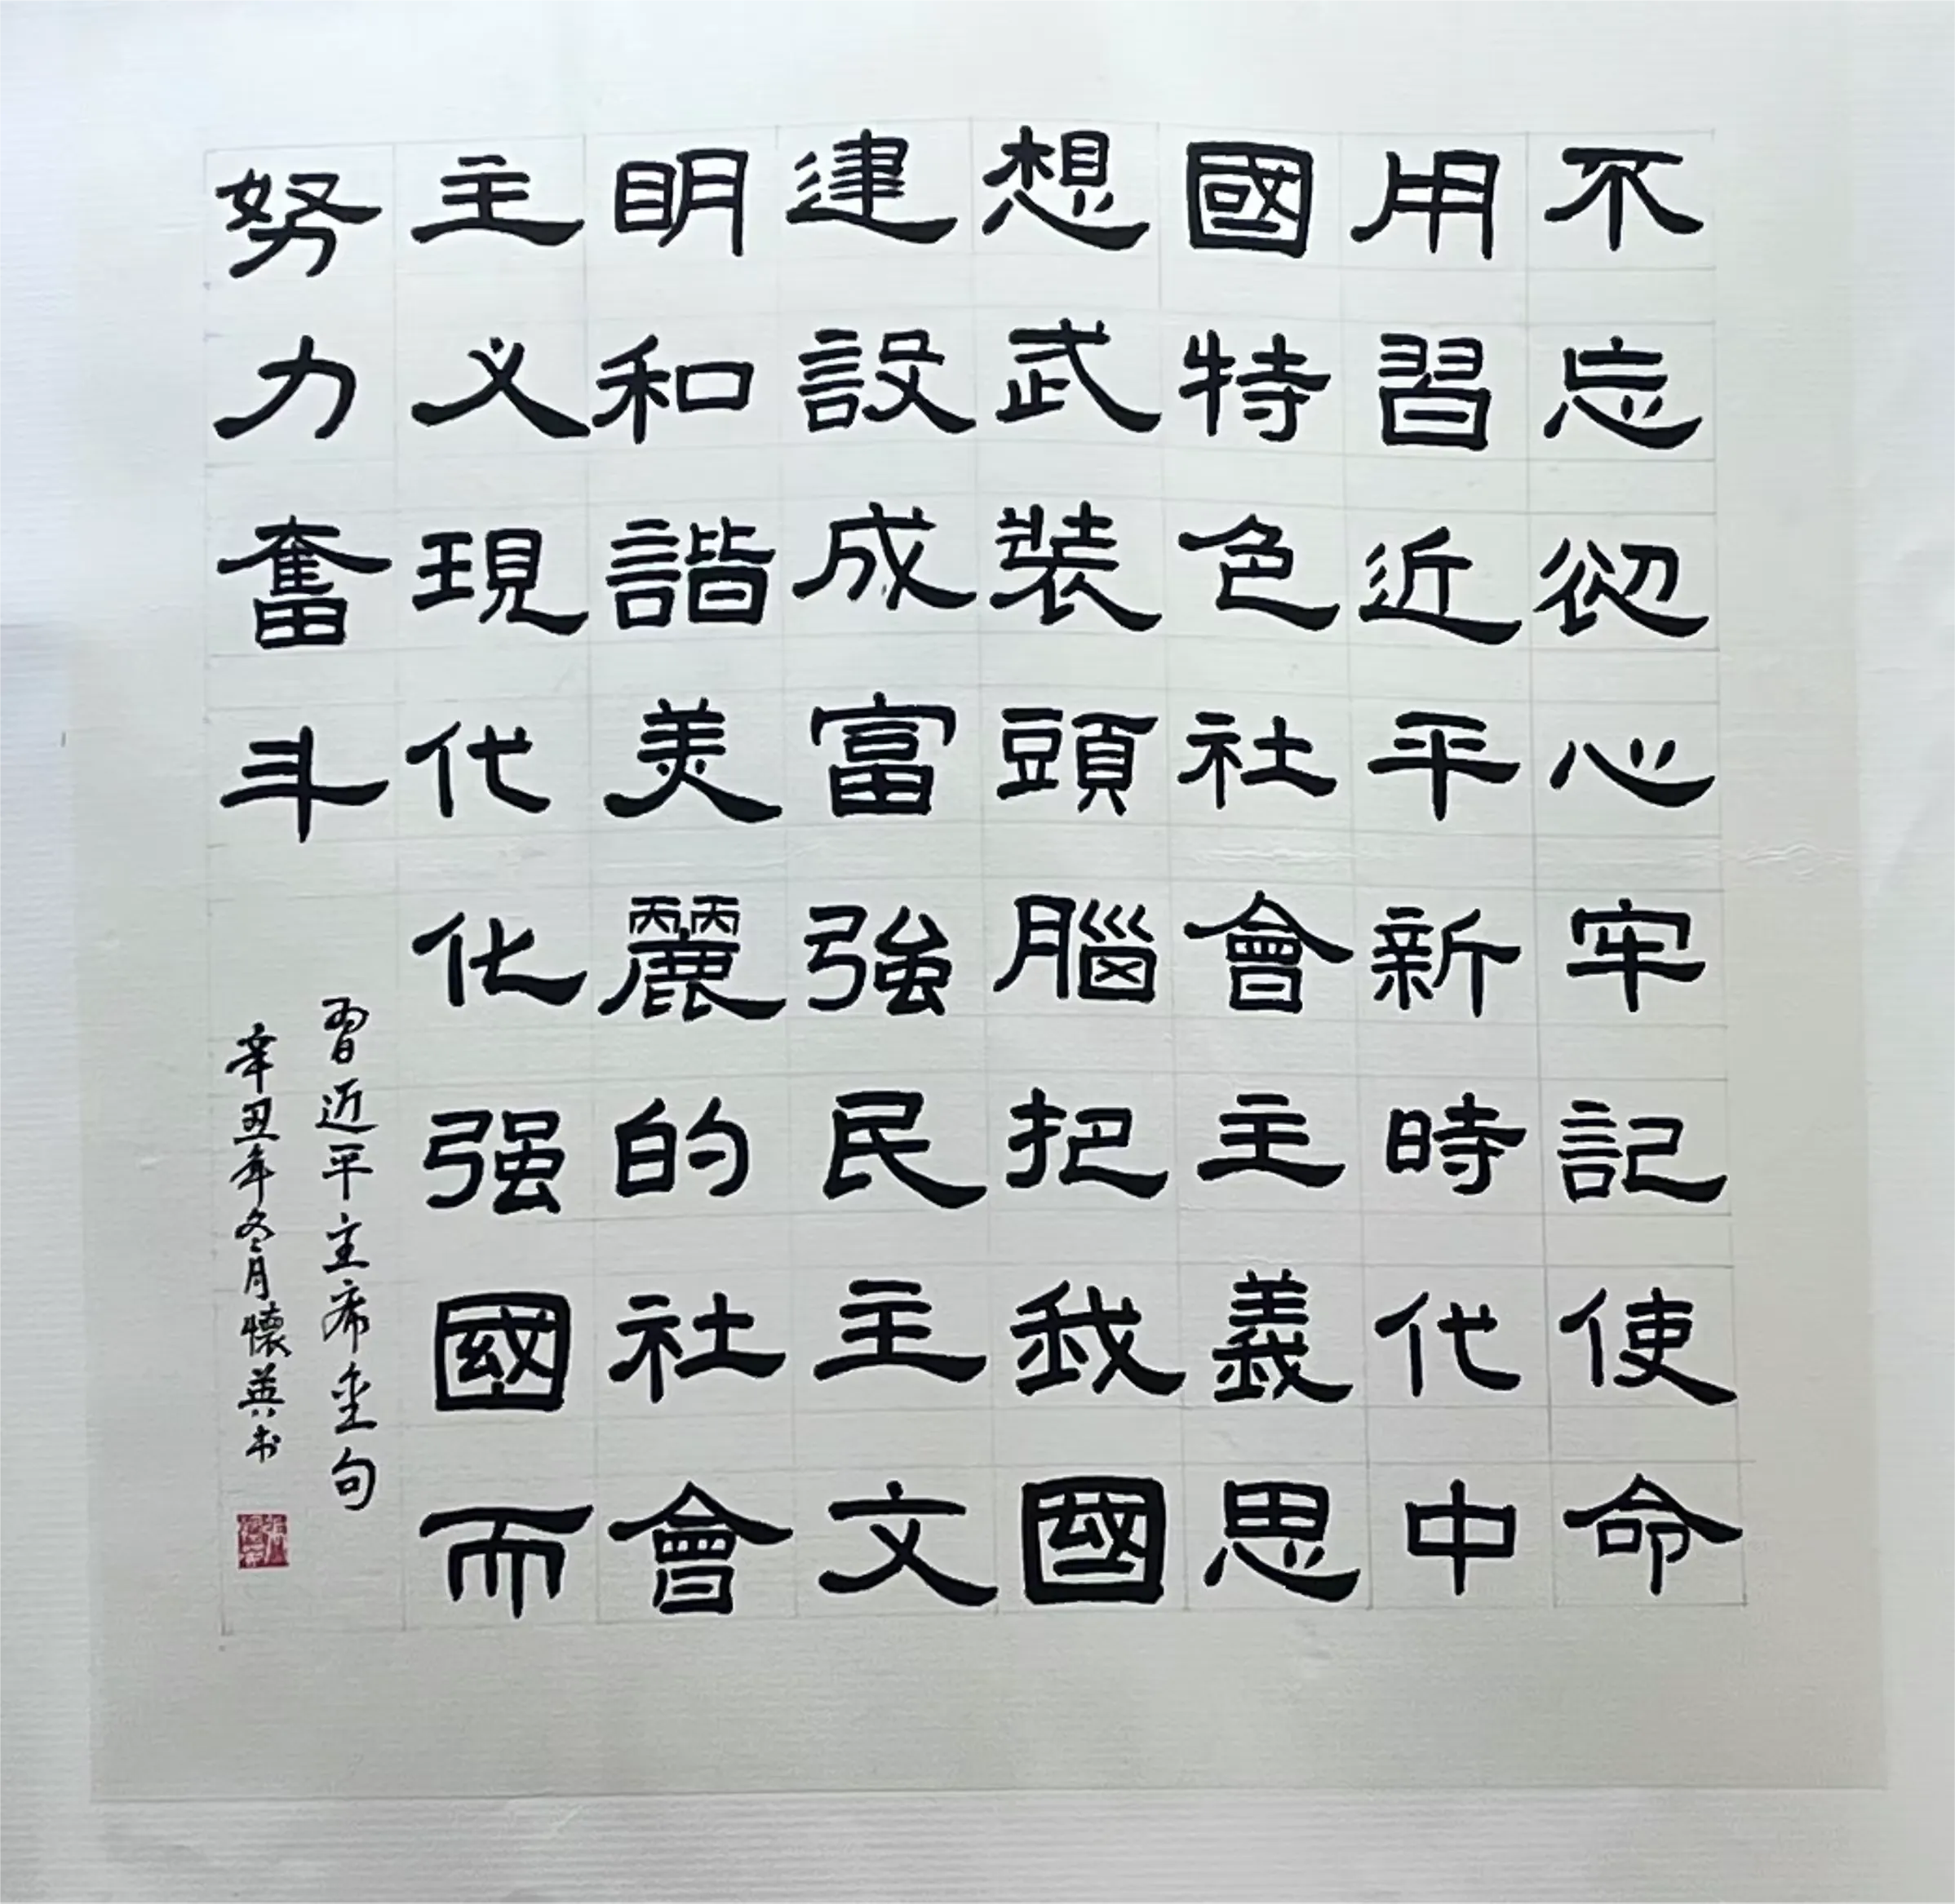 不忘初心牢記使命
用習近平新時代中
國特色社會主義思
想武裝頭腦把我國
建設成富強民主文
明和諧美麗的社會
主义現代化强國而
努力奮斗
習近平主席金句
辛丑年冬月懷英书